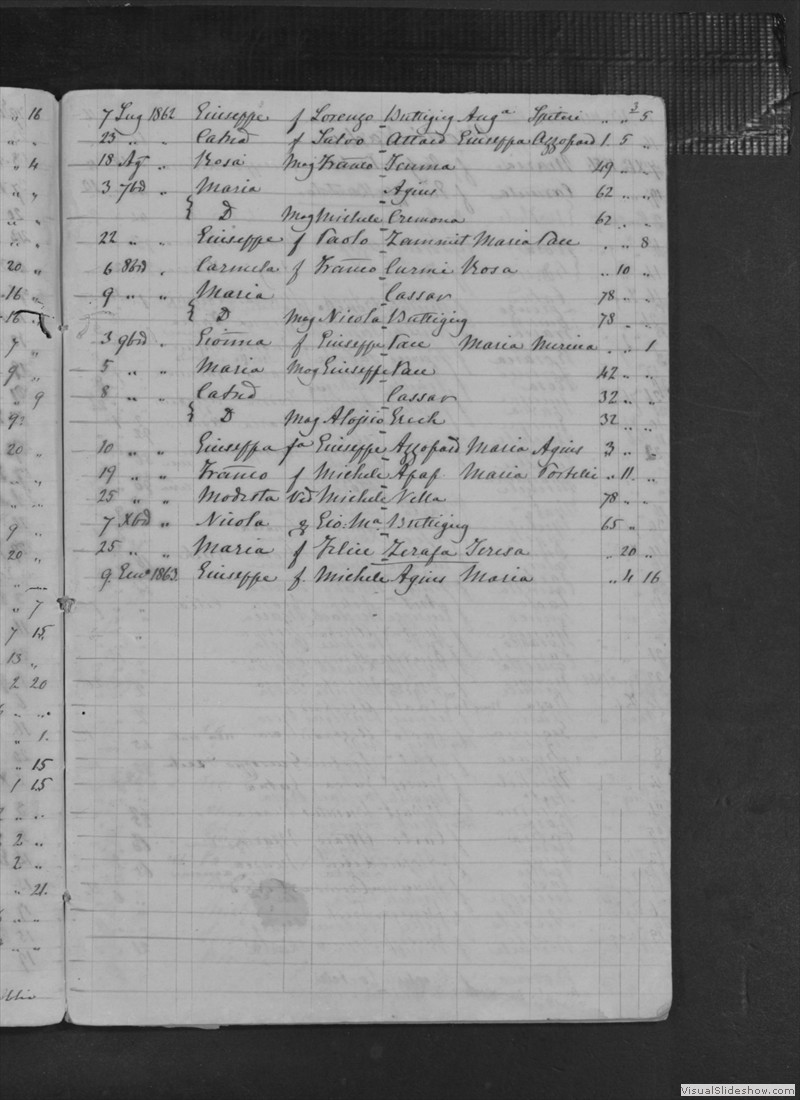 7 Lug 1862 Giuseppe f Lorenzo Buttigieg Ang.a Spiteri „ 3 5
25 „ „ Catnd f Salvo Attard Giuseppa Azzopard 1 5 „
18 Ag „ Rosa Mog Franco Tcuma 49 „ „
3 7bd „ Maria Agius 62 „ „
{ D Mog Michele Cremona 62 „ „
22 „ „ Giuseppe f Paolo Zammit Maria Pace „ „ 8
6 8bd „ Carmela f Franco Curmi Rosa „ 10 „
9 „ „ Maria Cassar 78 „ „
{ D Mog Nicola Buttigieg 78 „ „
3 9bd „ Gionna f Giuseppe Pace Maria „ „ 1
5 „ „ Maria Mog Giuseppe Pace 42 „ „
8 „ „ Catnd Cassar 32 „ „
{ D Mog Aloisio Grech 32 „ „
10 „ „ Giuseppa fa Giuseppe Azzopard Maria Agius 3 „ „
19 „ „ Franco f Michele Apap Maria Portelli „ 11 „
25 „ „ Modesta Ved Michele Vella 78 „ „
7 Xbd „ Nicola q Gio: Ma Buttigieg 65 „ „
25 „ „ Maria f Felice Zerafa Teresa „ 20 „
9 Genº 1863 Giuseppe f. Michele Agius Maria „ 4 16
„ 16
„ 4
20 „
16 „
16 „
7 „
9 „
„ 9
20 „
9 „
20 „
„ 7
7 15
13 „
2 20
„ 1.
„ 15
1 15
2 „
2 „
„ 21.
VisualSlideshow.com